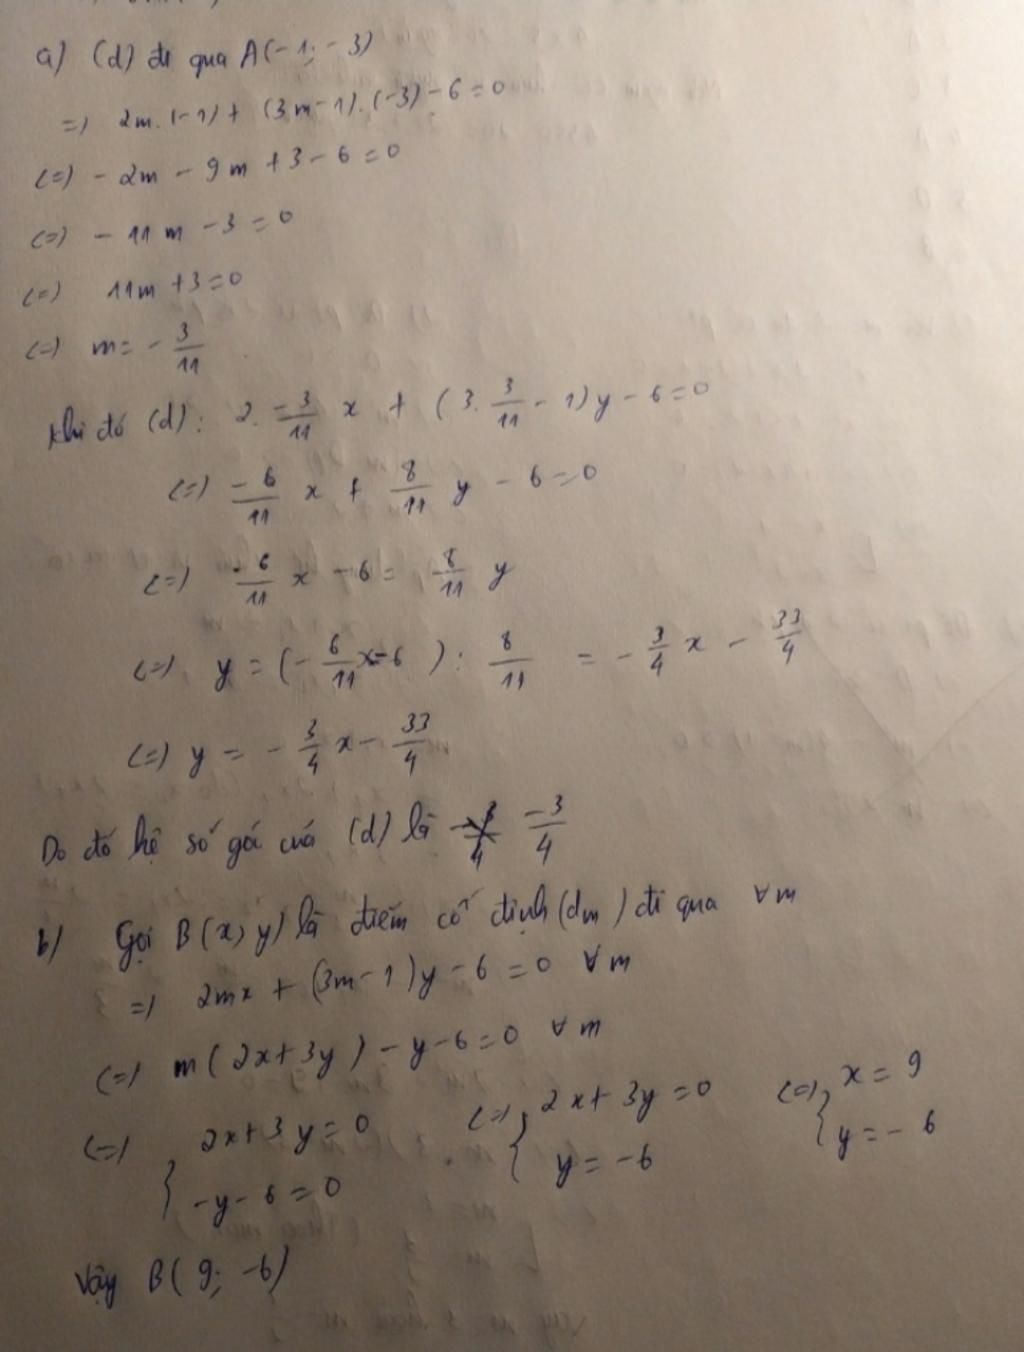 a) (d) đi qua A(-1; -3)
=) 2m.(-1) + (3m-1).(-3) - 6 = 0
(=) - 2m - 9m + 3 - 6 = 0
(=) - 11m - 3 = 0
(=) 11m + 3 = 0
(=) m = - 3/11
Khi đó (d): 2. -3/11 x + (3. 3/11 - 1)y - 6 = 0
(=) -6/11 x + 8/11 y - 6 = 0
(=) -6/11 x - 6 = 8/11 y
(=) y = (- 6/11 x - 6) : 8/11 = - 3/4 x - 33/4
(=) y = - 3/4 x - 33/4
Do đó hệ số góc của (d) là -3/4
b) Gọi B(x, y) là điểm cố định (dm) đi qua ∀m
=) 2mx + (3m-1)y - 6 = 0 ∀m
(=) m(2x+3y) - y - 6 = 0 ∀m
(=) { 2x + 3y = 0 (=) { 2x + 3y = 0 (=) { x = 9
-y - 6 = 0 y = -6 y = -6
Vậy B(9; -6)